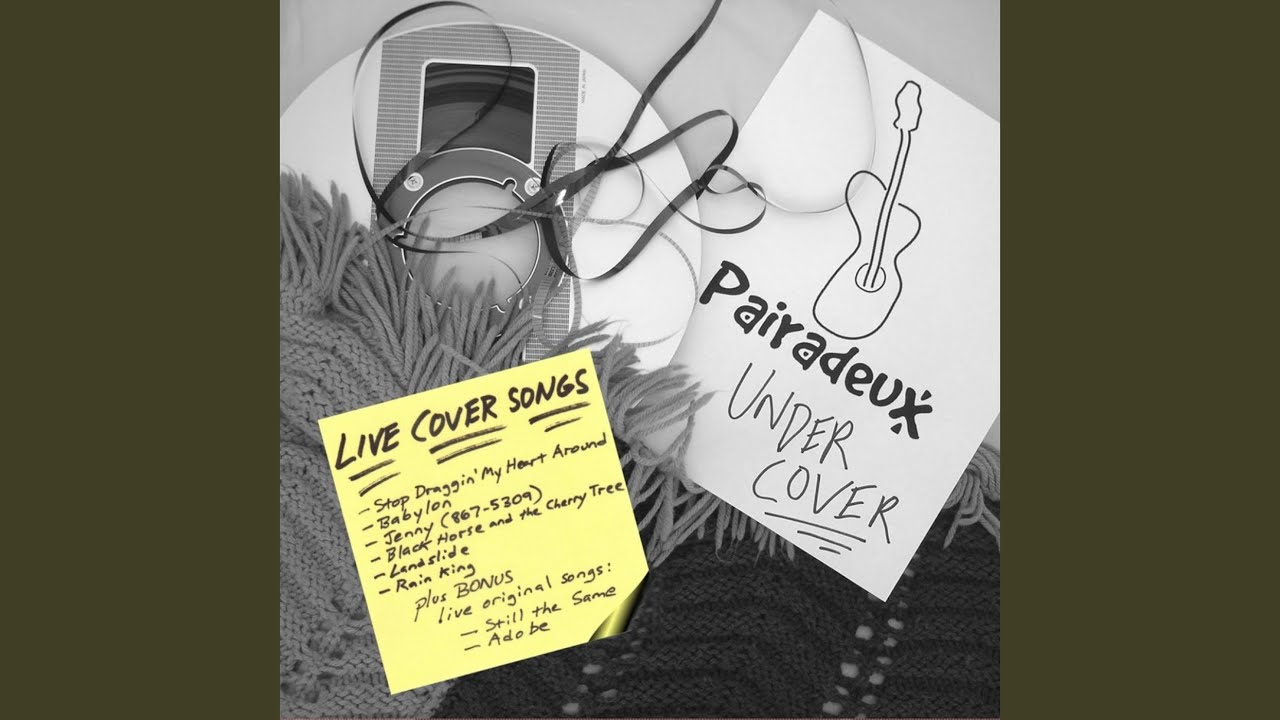 MADE IN JAPAN
Pairadeux
UNDER
COVER
LIVE COVER SONGS
- Stop Draggin' My Heart Around
- Babylon
- Jenny (867-5309)
- Black Horse and the Cherry Tree
- Landslide
- Rain King
plus BONUS
live original songs:
- Still the Same
- Adobe